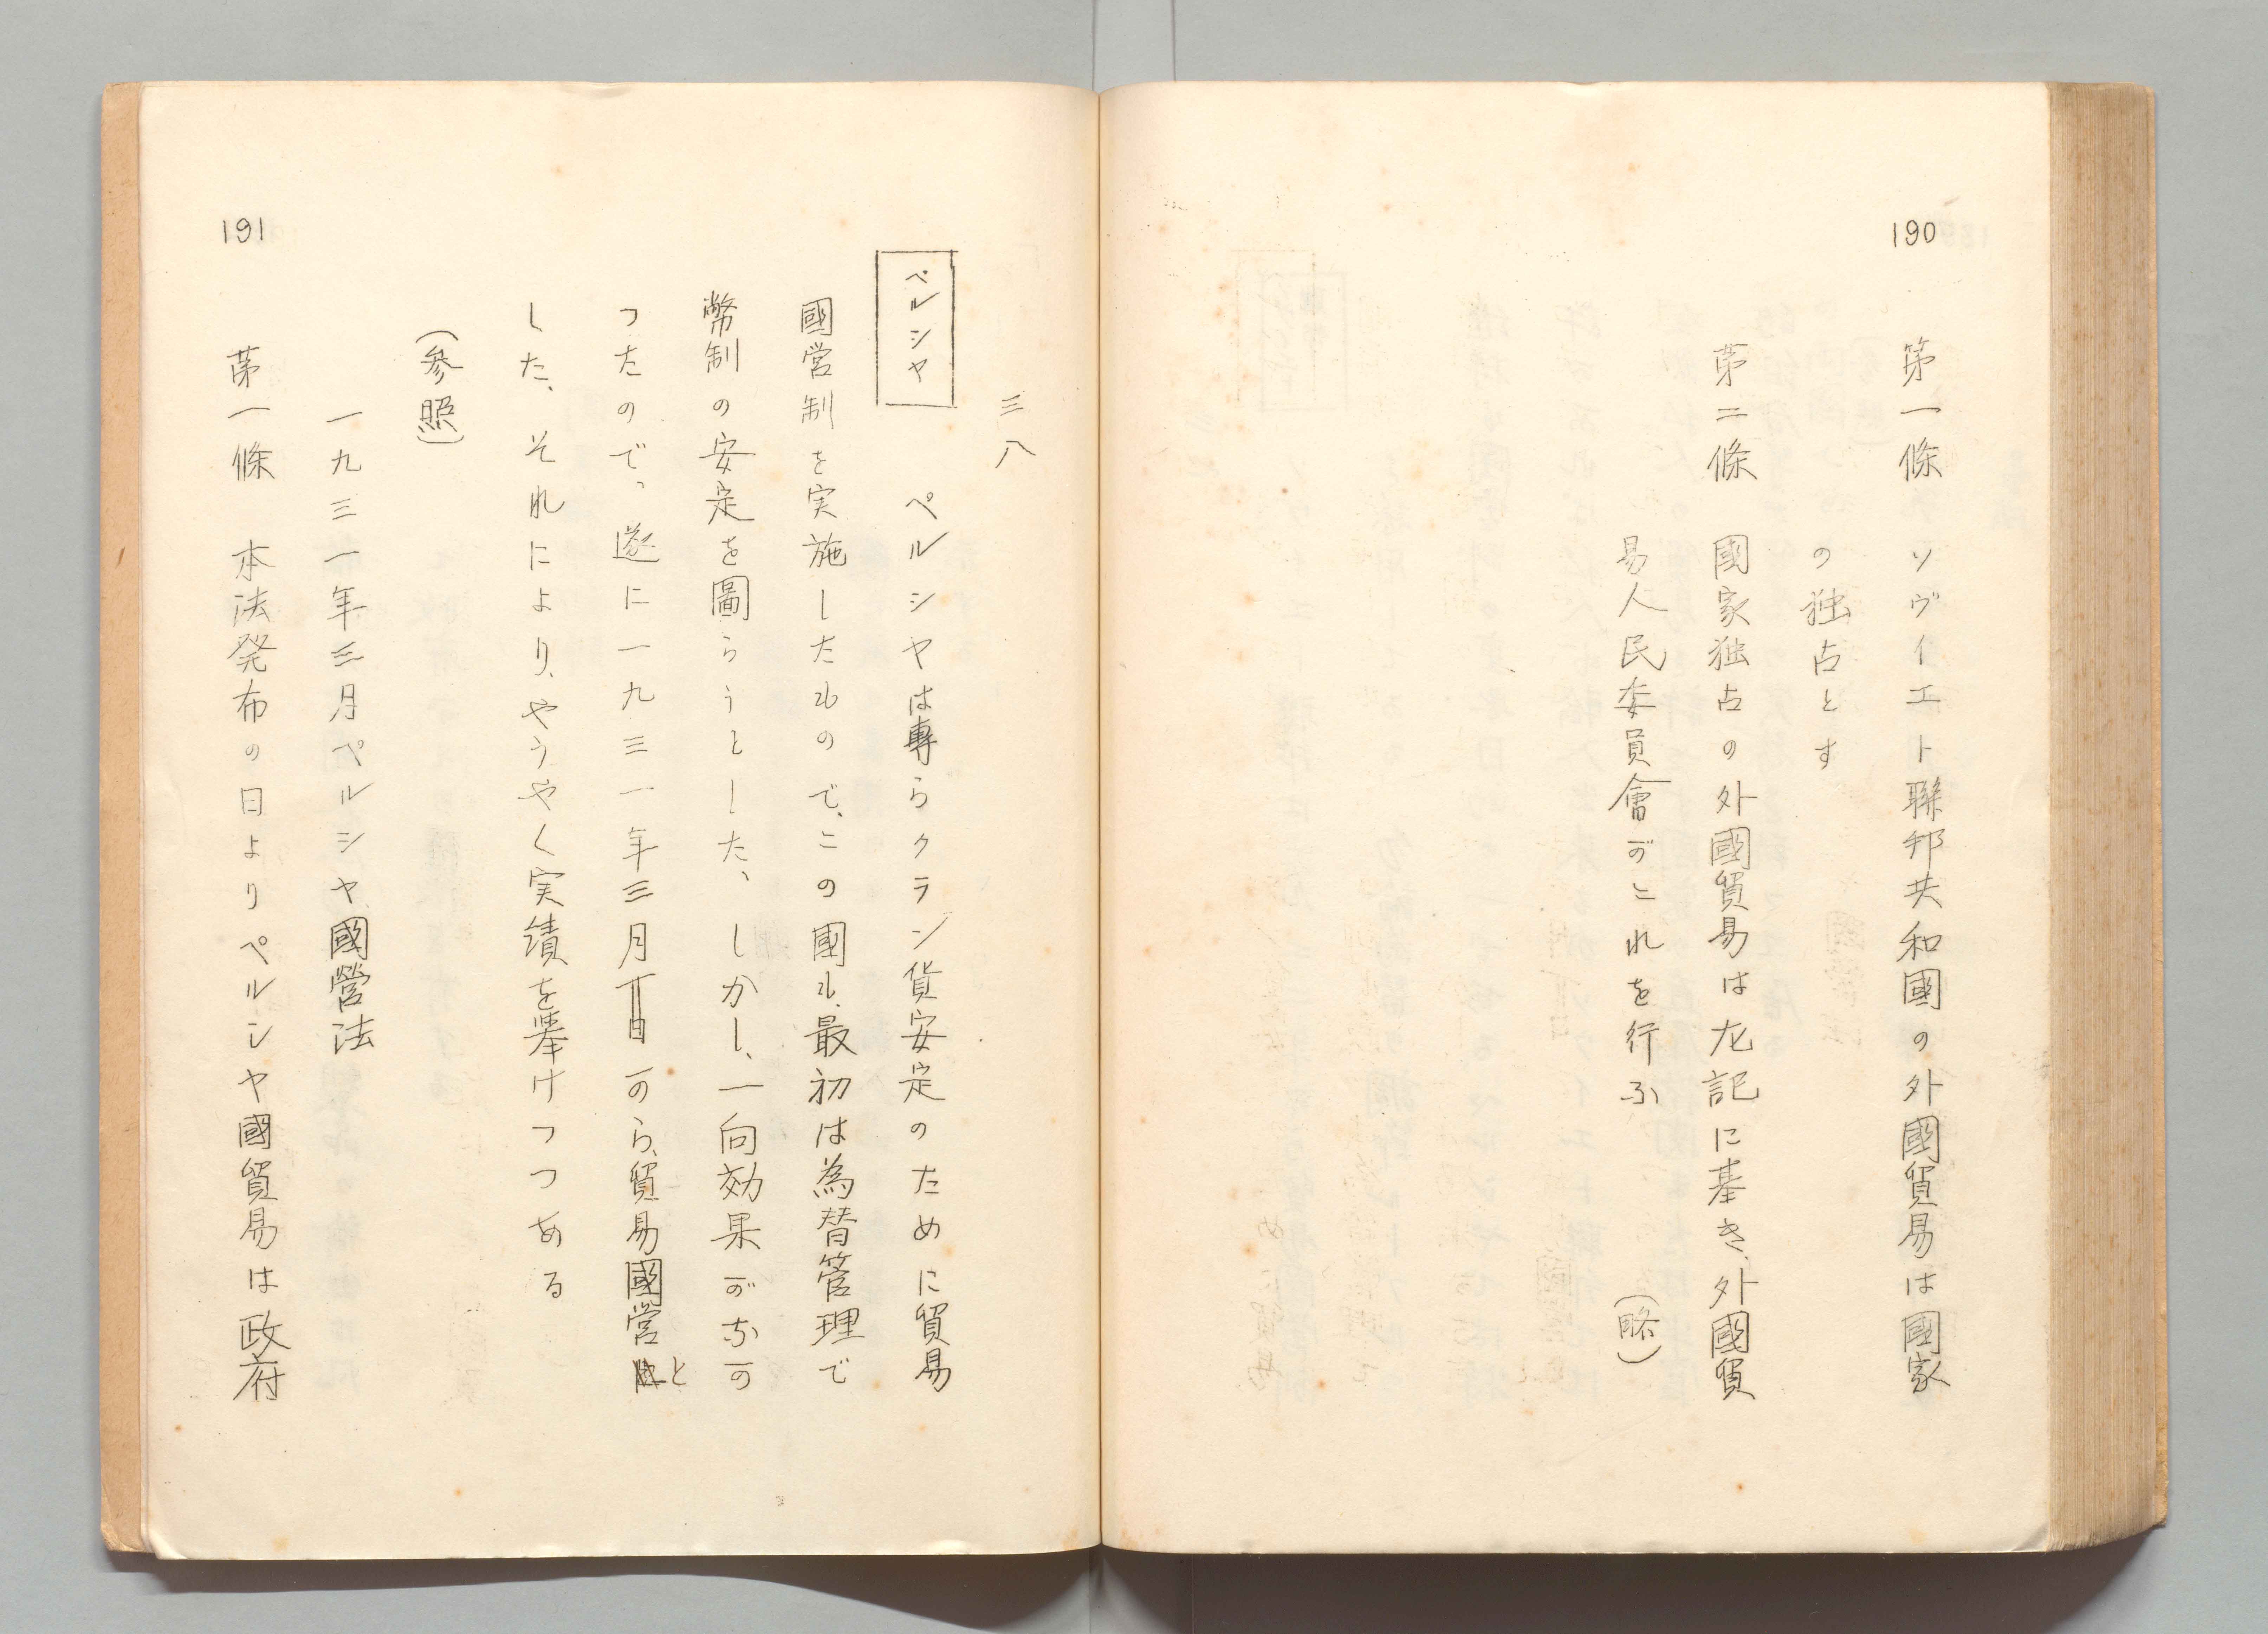 190
第一條　ソヴィエト聯邦共和國の外國貿易は國家
の独占とす
第二條　國家独占の外國貿易は左記に基き、外國貿
易人民委員會がこれを行ふ　（略）
三八
ペルシヤ
ペルシヤは專らクラン貨安定のために貿易
國営制を実施したもので、この國も、最初は為替管理で
幣制の安定を圖らうとした、しかし、一向効果がなか
つたので、遂に一九三一年三月から、貿易國営と
した、それにより、やうやく実績を挙けつつある
（參照）
一九三一年三月ペルシヤ國營法
第一條　本法発布の日よりペルシヤ國貿易は政府
191